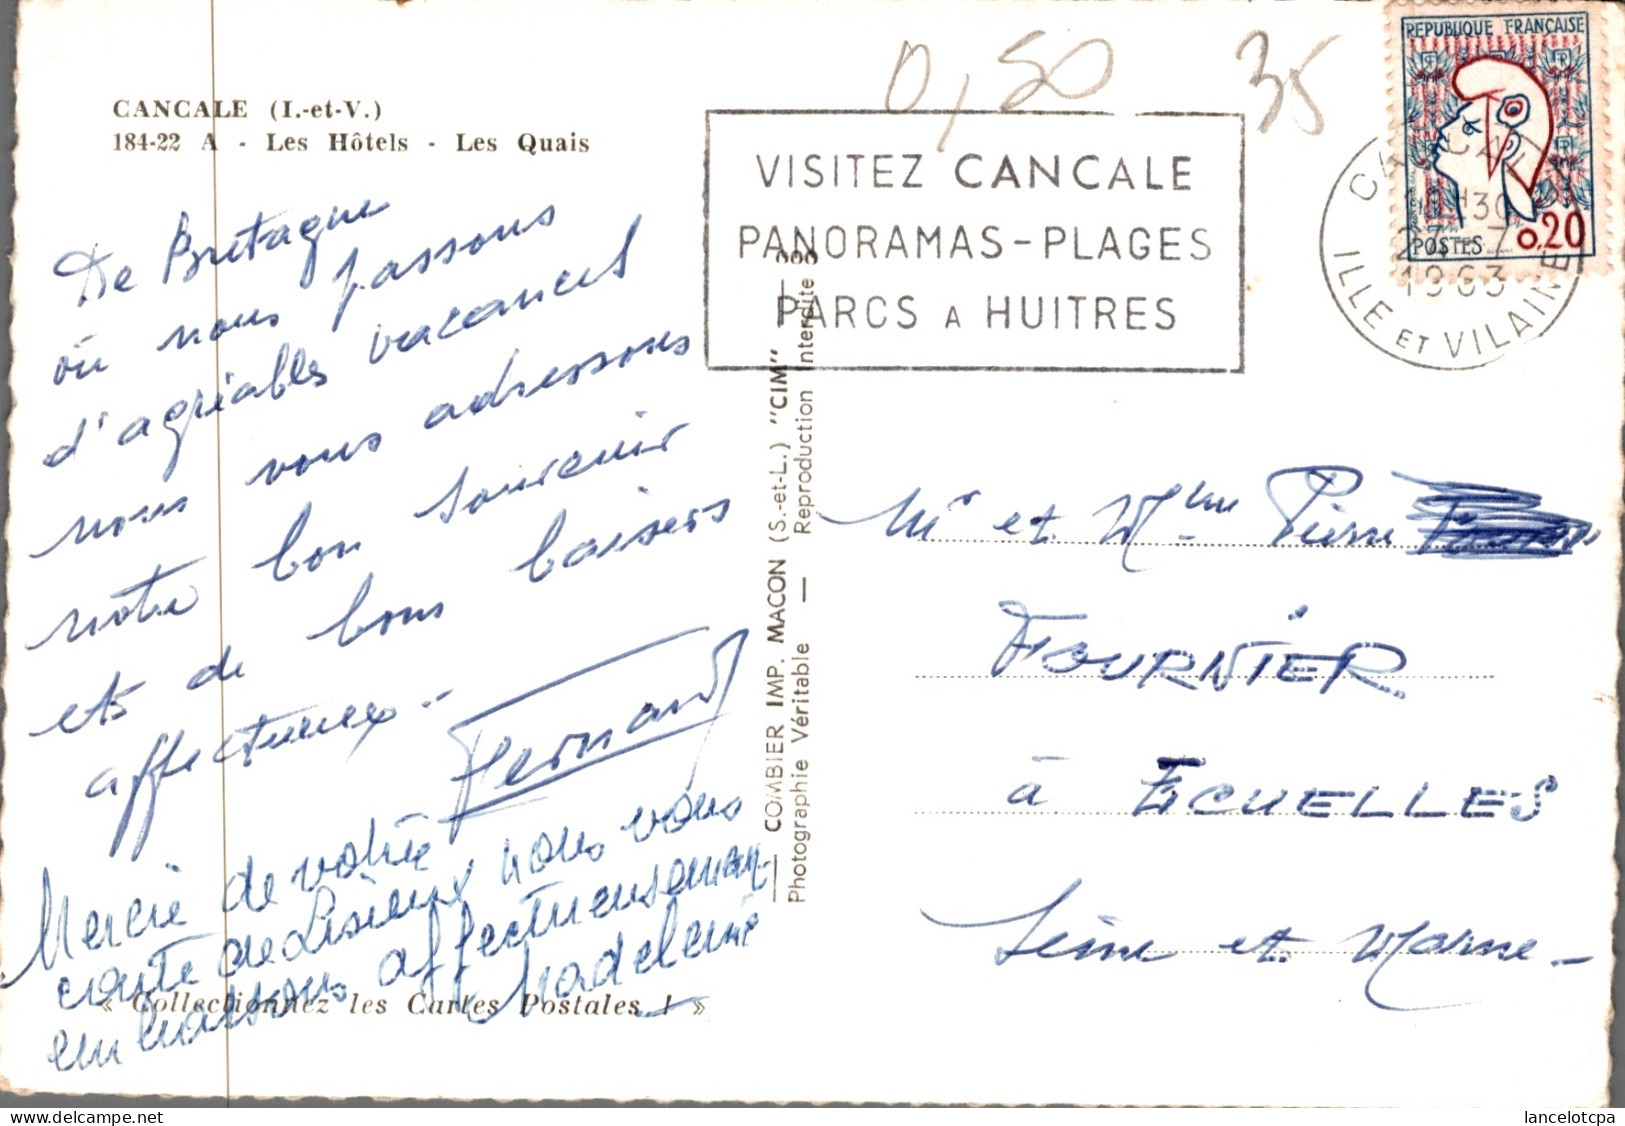 CANCALE (I.-et-V.)
184-22 A - Les Hôtels - Les Quais
De Bretagne
où nous passons
d'agréables vacances
nous vous adressons
notre bon souvenir
et de bons baisers
affectueux -
Fernand
Merci de votre
carte de Lisieux nous vous
embrassons affectueusement
Madeleine
« Collectionnez les Cartes Postales ! »
0,50
35
VISITEZ CANCALE
PANORAMAS - PLAGES
PARCS A HUITRES
REPUBLIQUE FRANÇAISE
POSTES
0,20
CANCALE
H30
1963
ILLE ET VILAINE
COMBIER IMP. MACON (S.-et-L.) "CIM"
Photographie Véritable — Reproduction interdite
Mr et Mme Pierre
FOURNIER
à ECUELLES
Seine et Marne -
lancelotcpa